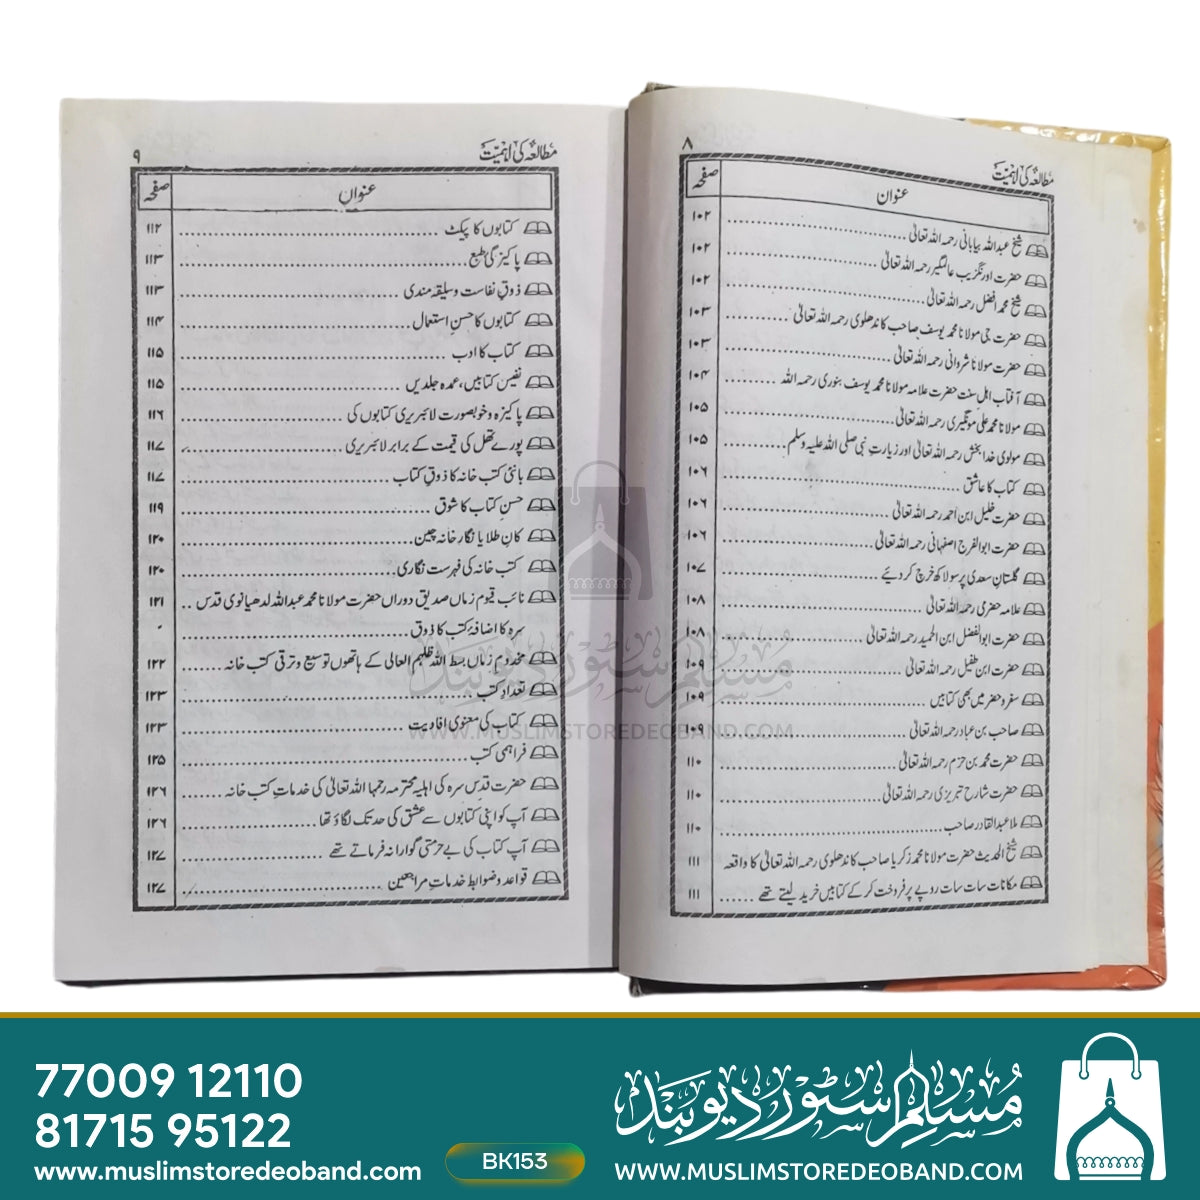 ۸
مطالعہ کی اہمیت
عنوان
صفحہ
شیخ عبداللہ بیابانی رحمہ اللہ تعالیٰ ۱۰۲
حضرت اورنگزیب عالمگیر رحمہ اللہ تعالیٰ ۱۰۲
شیخ محمد افضل رحمہ اللہ تعالیٰ ۱۰۲
حضرت جی مولانا محمد یوسف صاحب کاندھلوی رحمہ اللہ تعالیٰ ۱۰۳
حضرت مولانا شروانی رحمہ اللہ تعالیٰ ۱۰۳
آفتاب اہل سنت حضرت علامہ مولانا محمد یوسف بنوری رحمہ اللہ ۱۰۴
مولانا محمد علی مونگیری رحمہ اللہ تعالیٰ ۱۰۵
مولوی خدا بخش رحمہ اللہ تعالیٰ اور زیارتِ نبی صلی اللہ علیہ وسلم ۱۰۵
کتاب کا عاشق ۱۰۶
حضرت خلیل ابن احمد رحمہ اللہ تعالیٰ ۱۰۶
حضرت ابوالفرج اصفہانی رحمہ اللہ تعالیٰ ۱۰۶
گلستانِ سعدی پر سو لاکھ خرچ کر دیئے ۱۰۷
علامہ حضرمی رحمہ اللہ تعالیٰ ۱۰۸
حضرت ابوالفضل ابن الحمید رحمہ اللہ تعالیٰ ۱۰۸
حضرت ابن طفیل رحمہ اللہ تعالیٰ ۱۰۹
سفر و حضر میں بھی کتابیں ۱۰۹
صاحب بن عباد رحمہ اللہ تعالیٰ ۱۰۹
حضرت محمد بن حزم رحمہ اللہ تعالیٰ ۱۱۰
حضرت شارح تبریزی رحمہ اللہ تعالیٰ ۱۱۰
ملا عبدالقادر صاحب ۱۱۰
شیخ الحدیث حضرت مولانا محمد زکریا صاحب کاندھلوی رحمہ اللہ تعالیٰ کا واقعہ ۱۱۱
مکانات سات سات روپے پر فروخت کر کے کتابیں خرید لیتے تھے ۱۱۱
۹
مطالعہ کی اہمیت
عنوان
صفحہ
کتابوں کا پیکٹ ۱۱۲
پاکیزگیٔ طبع ۱۱۳
ذوقِ نفاست و سلیقہ مندی ۱۱۳
کتابوں کا حسنِ استعمال ۱۱۴
کتاب کا ادب ۱۱۵
نفیس کتابیں، عمدہ جلدیں ۱۱۵
پاکیزہ و خوبصورت لائبریری کتابوں کی ۱۱۶
پورے تھل کی قیمت کے برابر لائبریری ۱۱۷
بانیٔ کتب خانہ کا ذوقِ کتاب ۱۱۷
حسنِ کتاب کا شوق ۱۱۹
کانِ طلا یا نگار خانہ چین ۱۲۰
کتب خانہ کی فہرست نگاری ۱۲۰
نائب قیوم زماں صدیق دوراں حضرت مولانا محمد عبداللہ لدھیانوی قدس ۱۲۱
سرہ کا اضافۂ کتب کا ذوق
مخدوم زماں بسط اللہ ظلہم العالی کے ہاتھوں توسیع و ترقی کتب خانہ ۱۲۲
تعداد کتب ۱۲۳
کتاب کی معنوی افادیت ۱۲۳
فراہمی کتب ۱۲۵
حضرت قدس سرہ کی اہلیہ محترمہ رحمہا اللہ تعالیٰ کی خدماتِ کتب خانہ ۱۲۶
آپ کو اپنی کتابوں سے عشق کی حد تک لگاؤ تھا ۱۲۶
آپ کتاب کی بے حرمتی گوارا نہ فرماتے تھے ۱۲۷
قواعد و ضوابط خدماتِ مراجعین ۱۲۷
مسلم سٹور دیوبند
WWW.MUSLIMSTOREDEOBAND.COM
77000 12110
81715 95122
www.muslimstoredeoband.com
BK153
مسلم سٹور دیوبند
WWW.MUSLIMSTOREDEOBAND.COM